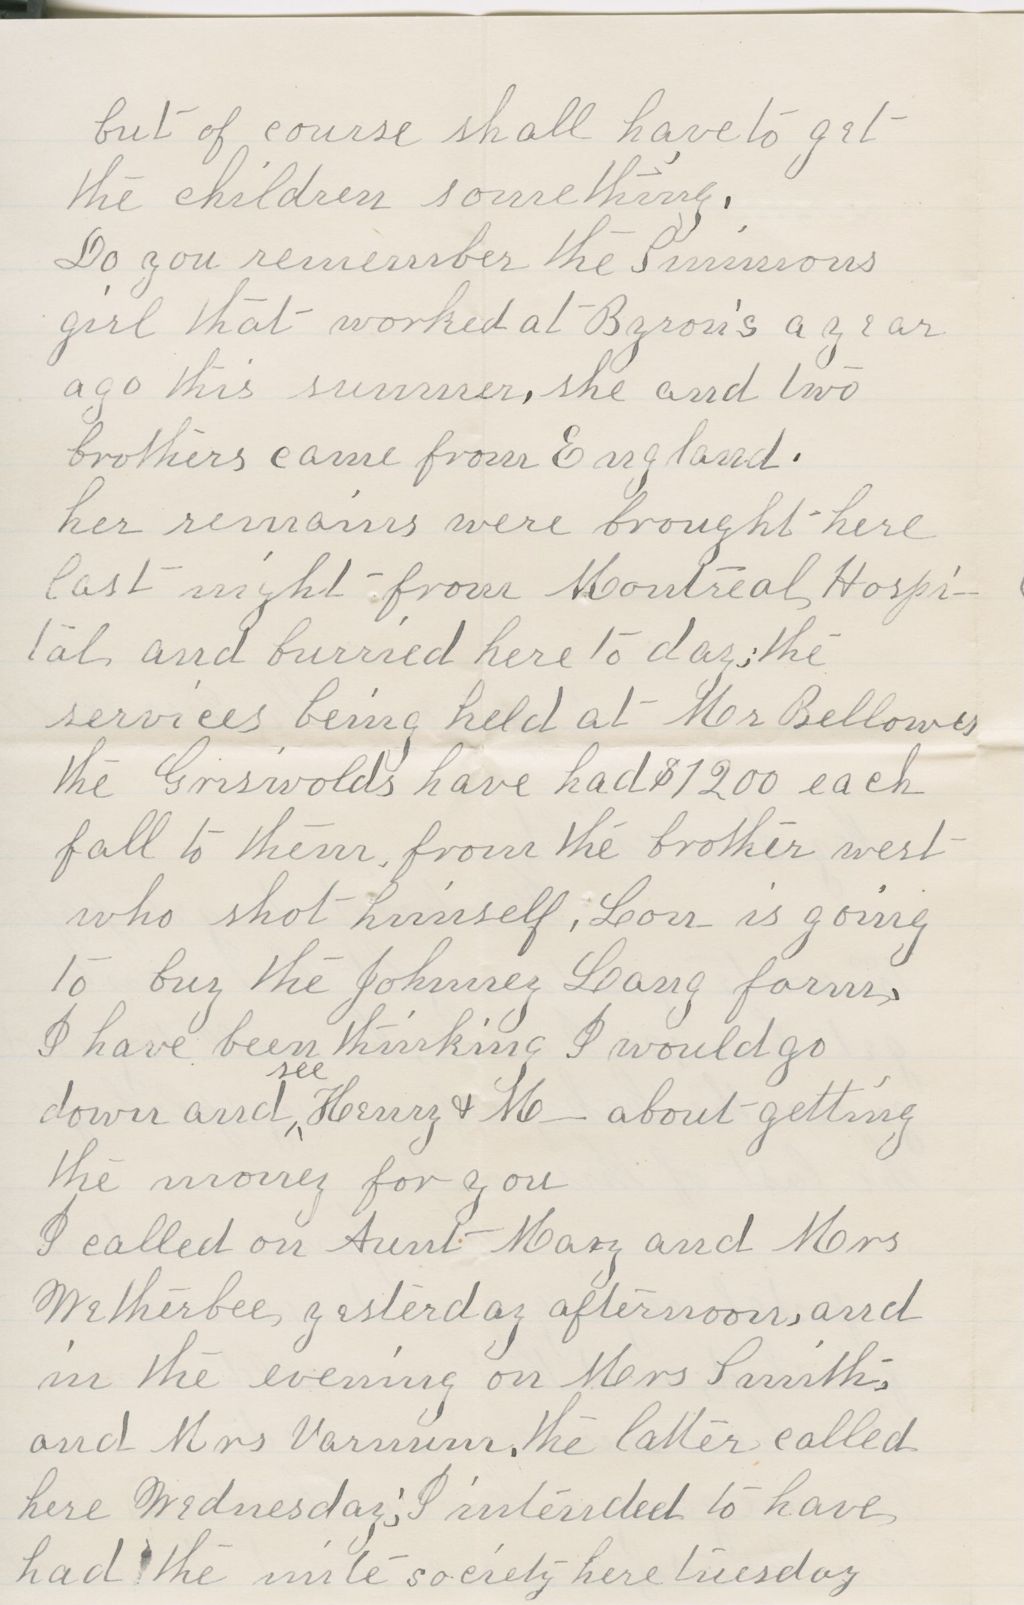 but of course shall have to get
the children something.
Do you remember the Simmons
girl that worked at Byron's a year
ago this summer, she and two
brothers came from England.
her remains were brought here
last night from Montreal Hospi-
tal, and burried here to day; the
services being held at Mr Bellowes
the Griswolds have had $1200 each
fall to them, from the brother west
who shot himself, Lon is going
to buy the Johnney Lang farm,
I have been thinking I would go
down and ^see Henry & M — about getting
the money for you
I called on Aunt Mary and Mrs
Wetherbee, yesterday afternoon, and
in the evening on Mrs Smith,
and Mrs Varnum, the latter called
here Wednesday; I intended to have
had the mite society here tuesday